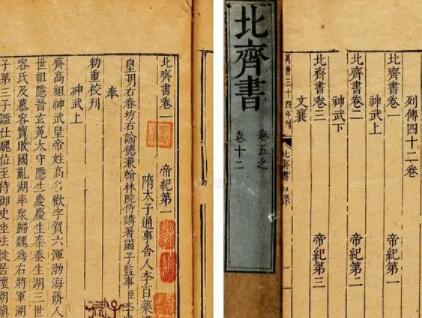 北齊書卷一　帝紀第一
隋太子通事舍人李百藥
皇明右春坊右諭德兼翰林院侍講署國子監事臣李
奉
勅重校刊
神武上
齊高祖神武皇帝姓高名歡字賀六渾渤海蓚人
世祖隱晉玄菟太守隱生慶慶生泰泰生湖三世
容氏及慕容寶敗國亂湖率衆歸魏為右將軍湖
子第三子謐仕魏位至侍御史坐法徙居懷朔鎮
北齊書
卷五之
卷十二
萬曆三十四年刊
北齊書
列傳四十二卷
北齊書卷一　帝紀第一
神武上
北齊書卷二　帝紀第二
神武下
北齊書卷三　帝紀第三
文襄